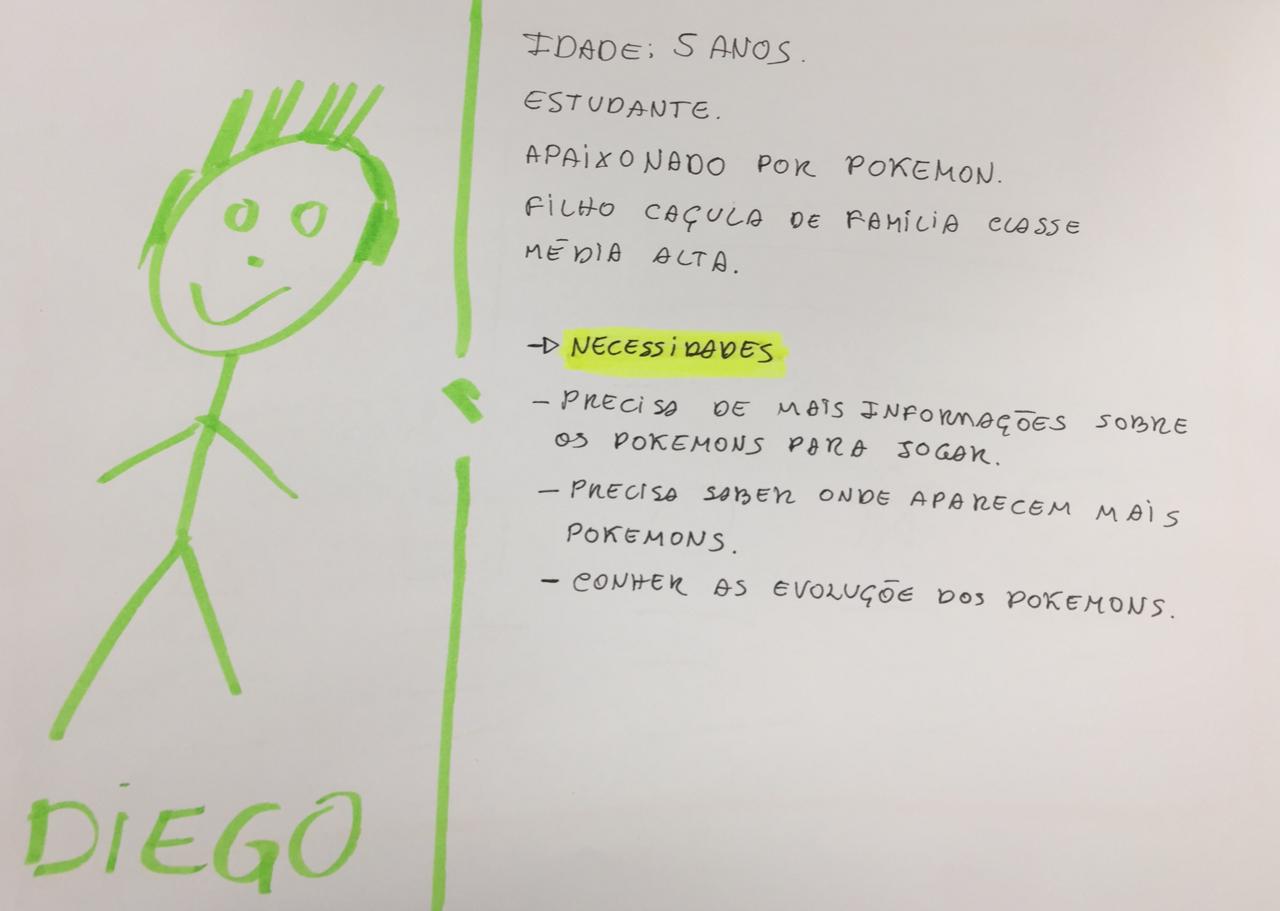 IDADE: 5 ANOS.
ESTUDANTE.
APAIXONADO POR POKEMON.
FILHO CAÇULA DE FAMÍLIA CLASSE
MÉDIA ALTA.
→ NECESSIDADES
- PRECISA DE MAIS INFORMAÇÕES SOBRE
OS POKEMONS PARA JOGAR.
- PRECISA SABER ONDE APARECEM MAIS
POKEMONS.
- CONHER AS EVOLUÇÕE DOS POKEMONS.
DIEGO